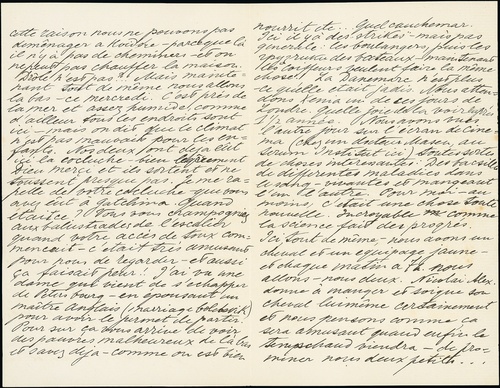 cette raison nous ne pouvons pas
déménager a Hvidöre - parceque là
il n'y a pas de cheminées - et on
ne peut pas chauffer la maison.
Drôle n'est pas?! Mais mainte-
nant tout de même nous allons
là bas - ce mercredi. C'est près de
la mer et assez humide, comme
d'ailleur tous les endroits sont
ici - mais on dit que le climat
n'est pas mauvais pour les en-
fants. Vos deux, ont déjà eu
ici la cocluche - bien
Dieu merci et ils sortent et ne
toussent presque pas. Je me ra-
pelle de votre cocluche que vous
avez eue a Gatchina. Quand
était ce?! Vous vous
aux balustrades de l'escalier
quand votre accès de toux com-
mençait - c'était très amusant
pour nous de regarder - et aussi
ça faisait peur! J'ai vu une
dame qui vient de s'echapper
de Petersbourg - en épousant un
maitre (mariage bolshevik)
pour avoir le permit de partir.
Pour sur ça vous arrive de voir
des pauvres malheureux de là bas
et savez déjà - comme on est bien
nourrit etc... Quel cauchemar.
Ici il y a des strikes - mais pas
générale: les boulangers, puis les
équipages des bateaux - maintenant
les coiffeurs veulent faire la même
chose! La Danemark n'est plus
ce quelle était jadis. Nous atten-
dons Xenia un de ces jours de
Londre. Quelle joie de la voir après
1½ année! Nous avons vues
l'autre jour sur l'écran de cinema
(chez un docteur Madsen, au
Serum Institut ici) toutes sortes
de choses interessantes. Des bacilles
de differentes maladies dans
le sang - vivantes et mangeant
un l'autre. Pour moi - au
moins, c'était une chose toute
nouvelle. Incroyable comme
la science fait des progrès.
Ici tout de même - nous avons un
cheval et un equipage jaune -
et chaque matin a nous
allons - nous deux. Nicolai Alex.
donne a manger et soigne son
cheval luimême certainement
et nous pensons comme ça
sera amusant quand enfin le
temps chaud viendra - de pro-
miner nous deux petits...